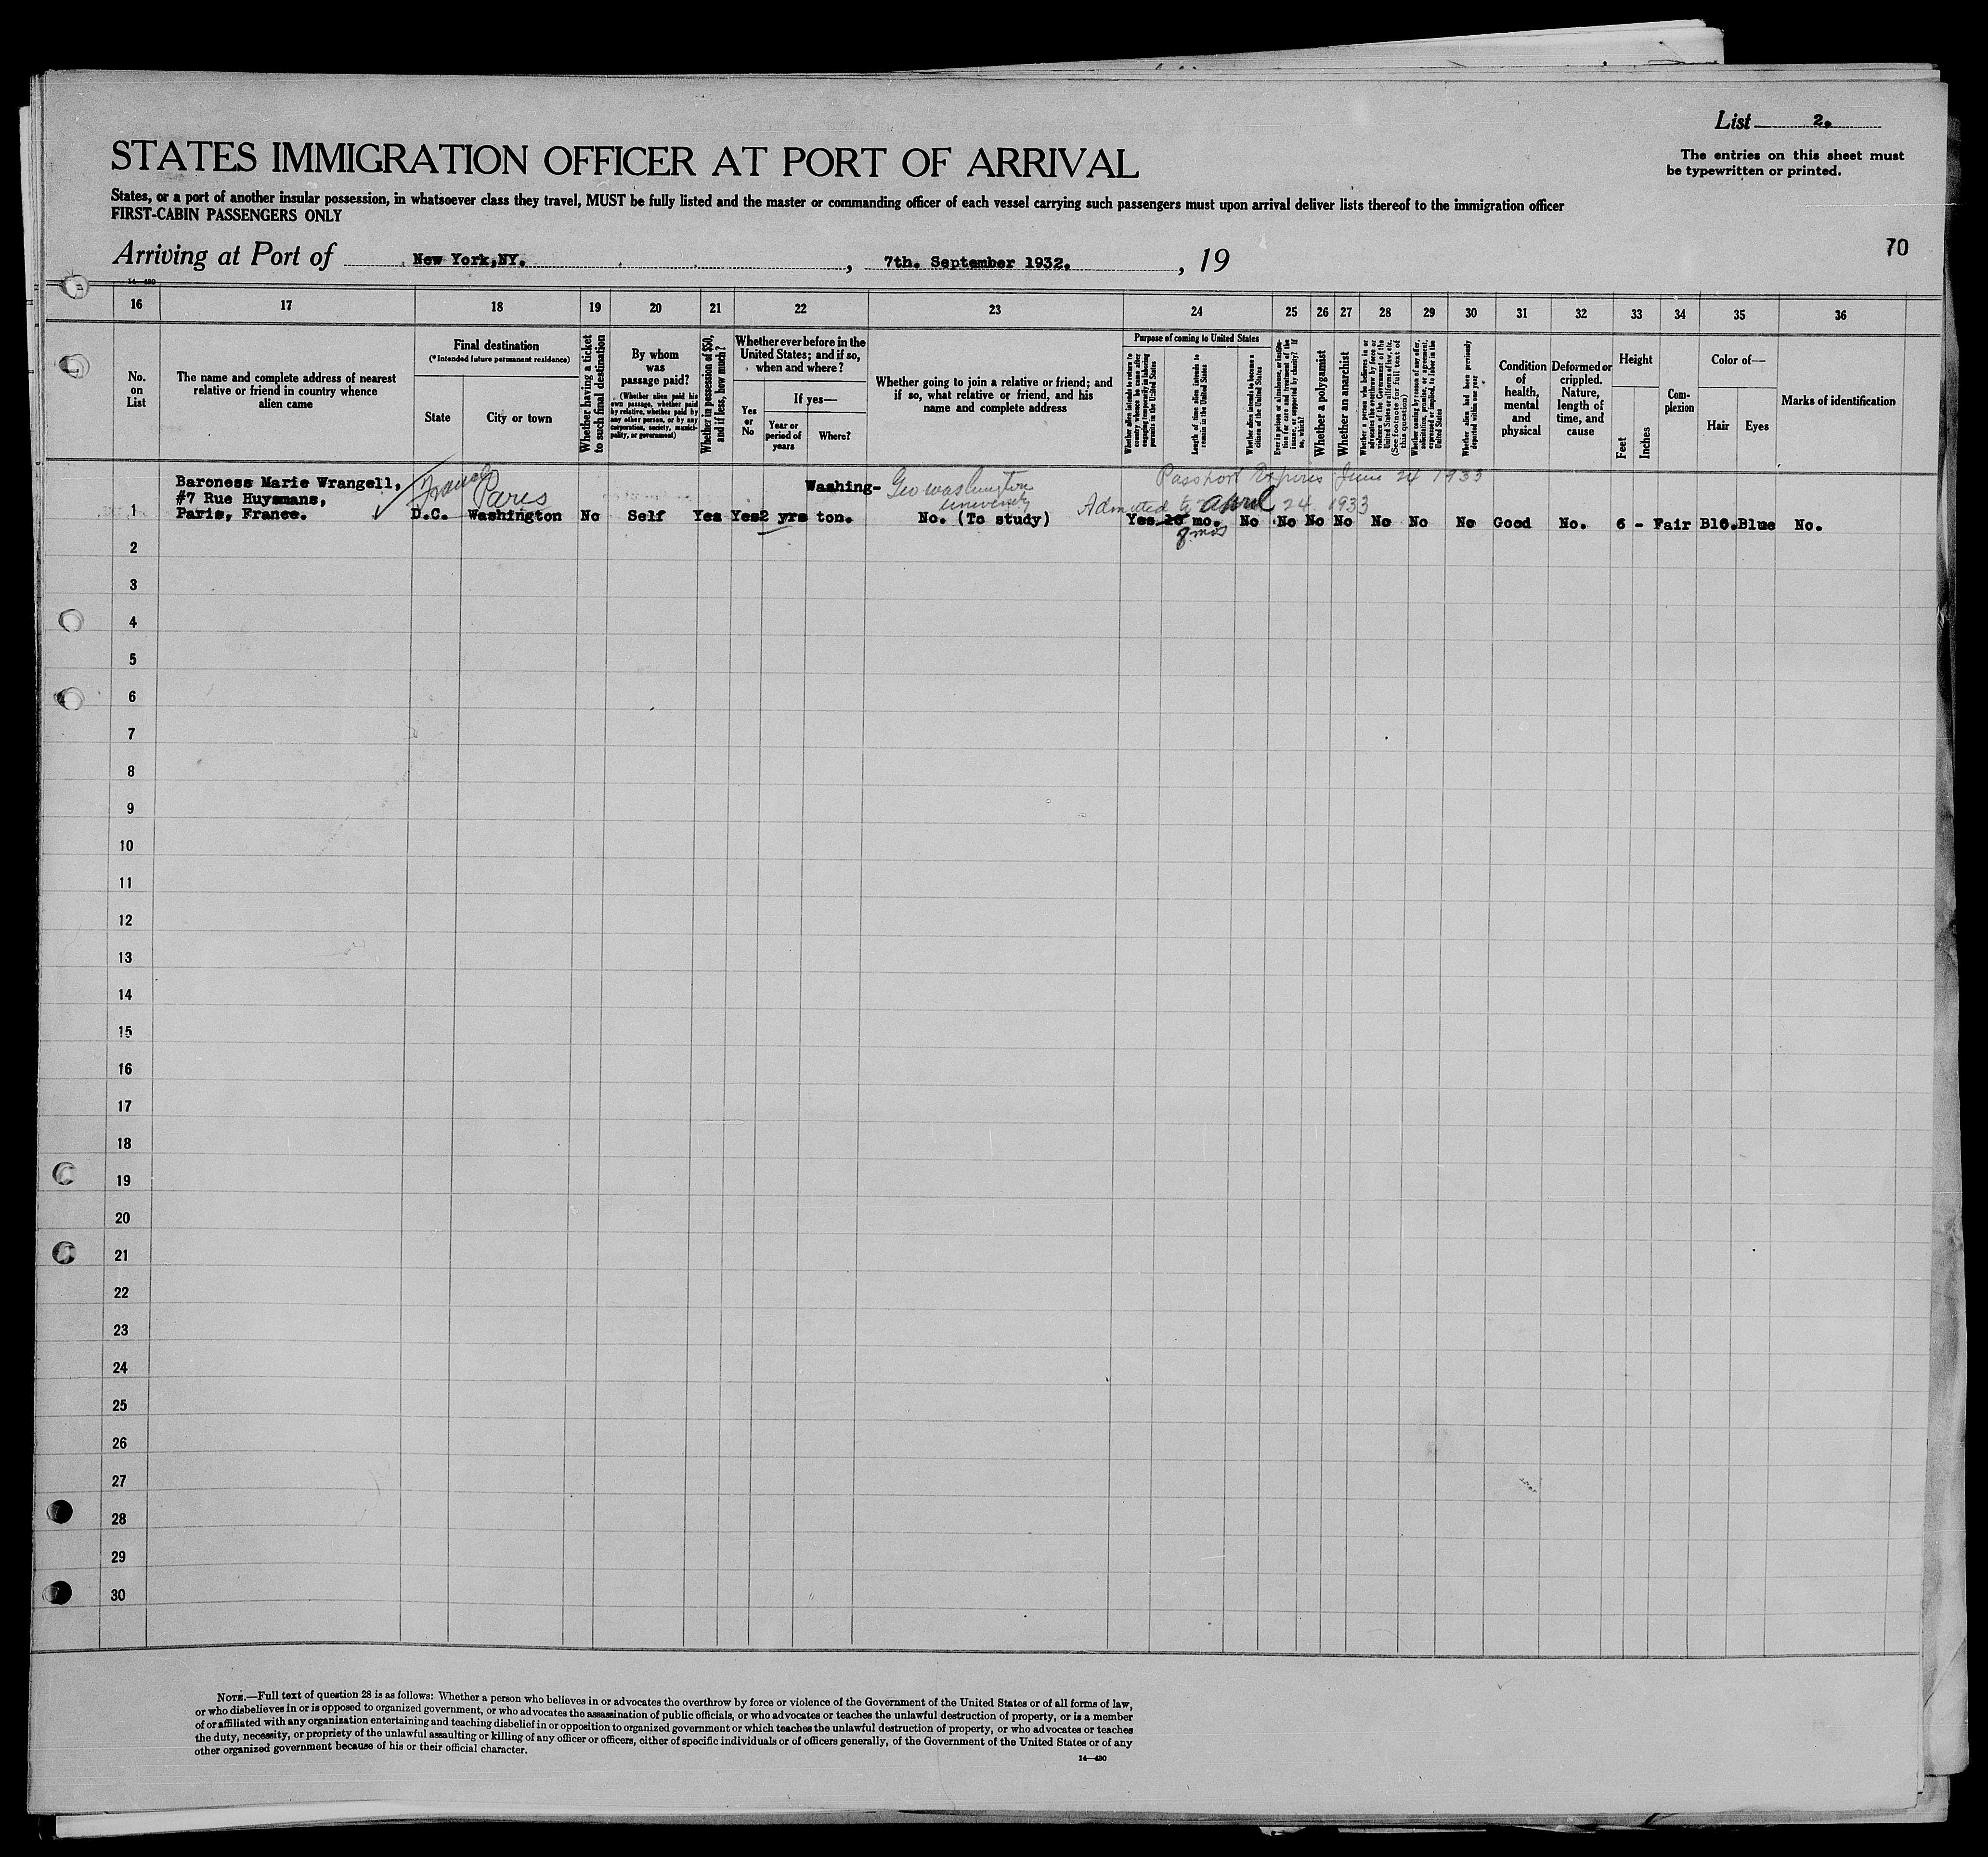 List 2.
The entries on this sheet must
be typewritten or printed.
STATES IMMIGRATION OFFICER AT PORT OF ARRIVAL
States, or a port of another insular possession, in whatsoever class they travel, MUST be fully listed and the master or commanding officer of each vessel carrying such passengers must upon arrival deliver lists thereof to the immigration officer
FIRST-CABIN PASSENGERS ONLY
70
Arriving at Port of New York,NY. , 7th. September 1932. , 19
14—430
16 17 18 19 20 21 22 23 24 25 26 27 28 29 30 31 32 33 34 35 36
No.
on
List
The name and complete address of nearest
relative or friend in country whence
alien came
Final destination
(*Intended future permanent residence)
State
City or town
Whether having a ticket
to such final destination
By whom
was
passage paid?
(Whether alien paid his
own passage, whether paid
by relative, whether paid by
any other person, or by any
corporation, society, munici-
pality, or government)
Whether in possession of $50,
and if less, how much?
Whether ever before in the
United States; and if so,
when and where?
Yes
or
No
If yes—
Year or
period of
years
Where?
Whether going to join a relative or friend; and
if so, what relative or friend, and his
name and complete address
Purpose of coming to United States
Whether alien intends to return to
country whence he came after
engaging temporarily in laboring
pursuits in the United States
Length of time alien intends to
remain in the United States
Whether alien intends to become a
citizen of the United States
Ever in prison or almshouse, or institu-
tion for care and treatment of the
insane, or supported by charity? If
so, which?
Whether a polygamist
Whether an anarchist
Whether a person who believes in or
advocates the overthrow by force or
violence of the Government of the
United States or all forms of law, etc.
(See footnote for full text of
this question)
Whether coming by reason of any offer,
solicitation, promise, or agreement,
expressed or implied, to labor in the
United States
Whether alien had been previously
deported within one year
Condition
of
health,
mental
and
physical
Deformed or
crippled.
Nature,
length of
time, and
cause
Height
Feet
Inches
Com-
plexion
Color of—
Hair
Eyes
Marks of identification
Baroness Marie Wrangell,
#7 Rue Huysmans,
Paris, France.
France Paris
Washing-
Geo washington
university
Passport Expires June 24 1933
Admitted to April 24 1933
1 D.C. Washington No Self Yes Yes 2 yrs ton. No. (To study) Yes 10 mo. No No No No No No No Good No. 6 - Fair Blo. Blue No.
8 mos
2
3
4
5
6
7
8
9
10
11
12
13
14
15
16
17
18
19
20
21
22
23
24
25
26
27
28
29
30
NOTE.—Full text of question 28 is as follows: Whether a person who believes in or advocates the overthrow by force or violence of the Government of the United States or of all forms of law,
or who disbelieves in or is opposed to organized government, or who advocates the assassination of public officials, or who advocates or teaches the unlawful destruction of property, or is a member
of or affiliated with any organization entertaining and teaching disbelief in or opposition to organized government or which teaches the unlawful destruction of property, or who advocates or teaches
the duty, necessity, or propriety of the unlawful assaulting or killing of any officer or officers, either of specific individuals or of officers generally, of the Government of the United States or of any
other organized government because of his or their official character.
14—430